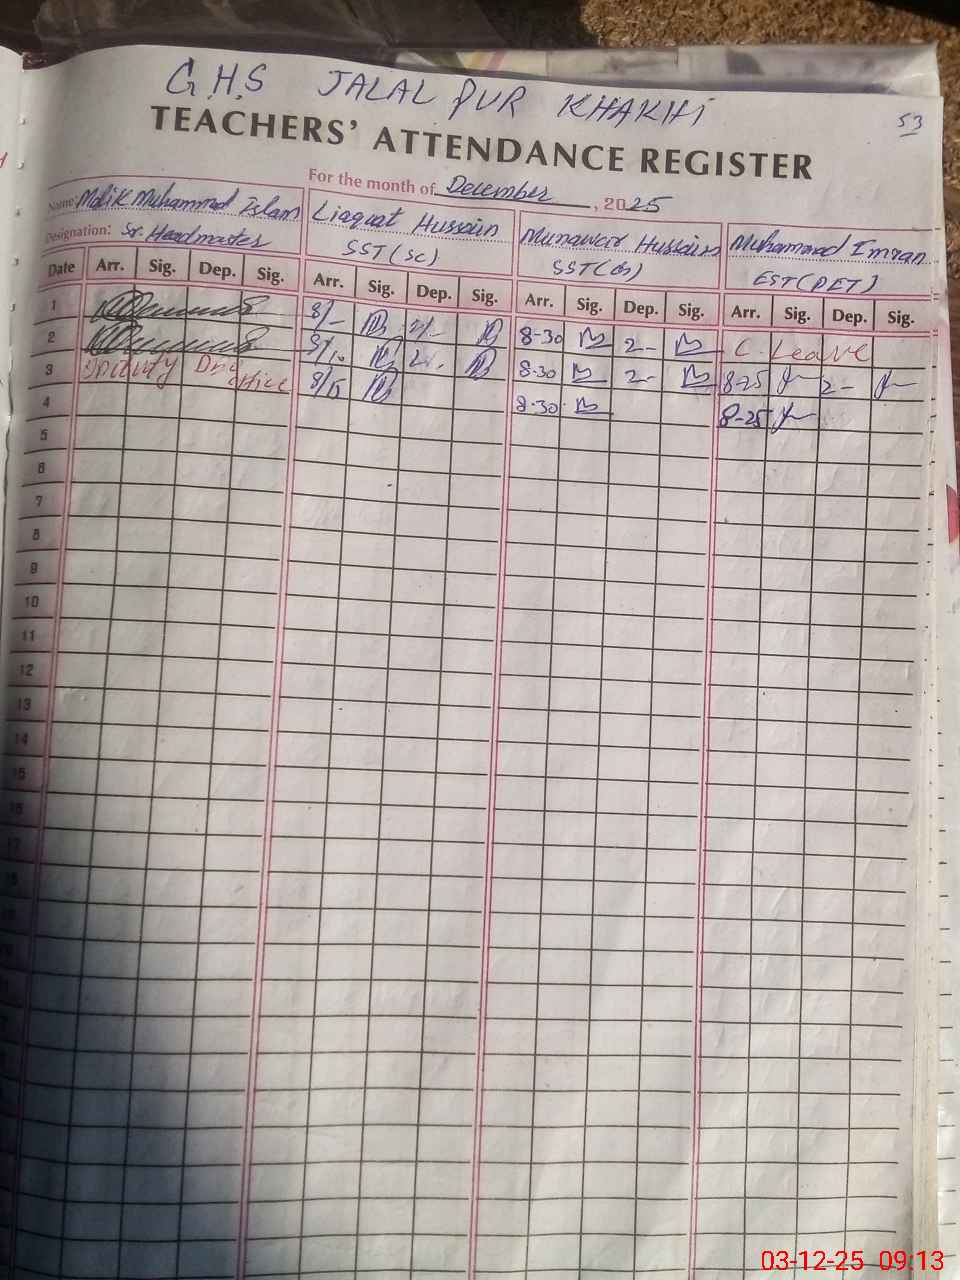 G.H.S JALAL PUR KHAKHI
53
TEACHERS' ATTENDANCE REGISTER
For the month of December, 2025
Name: Malik Muhammad Islam Liaquat Hussain Munawar Hussain Muhammad Imran
Designation: Sr. Headmaster SST(SC) SST EST(PET)
Date Arr. Sig. Dep. Sig. Arr. Sig. Dep. Sig. Arr. Sig. Dep. Sig. Arr. Sig. Dep. Sig.
1 8/- 2/- 8-30 2- C. Leave
2 8/10 2/- 8-30 2- 8-25 2-
3 On Duty office 8/15 8-30 8-25
4
5
6
7
8
9
10
11
12
13
14
15
16
17
03-12-25 09:13